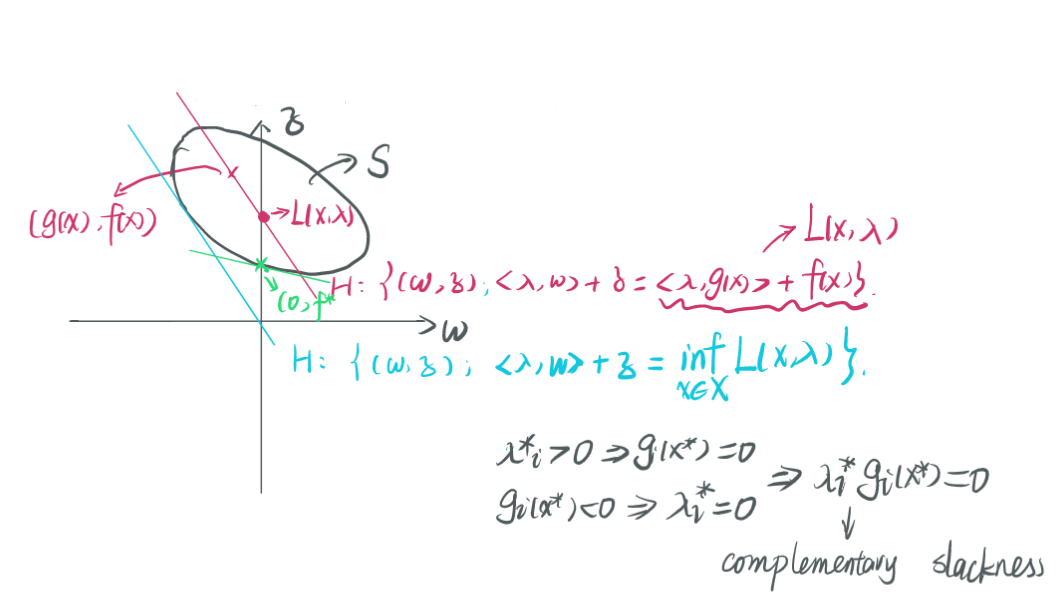 z
S
(g(x), f(x))
L(x,λ)
L(x,λ)
H: {(w,z); <λ,w> + z = <λ,g(x)> + f(x)}.
(0,f*
w
H: {(w,z); <λ,w> + z = inf L(x,λ)}.
x∈X
λ*i>0 ⇒ g(x*)=0
gi(x*)<0 ⇒ λi*=0 ⇒ λi* gi(x*)=0
complementary slackness